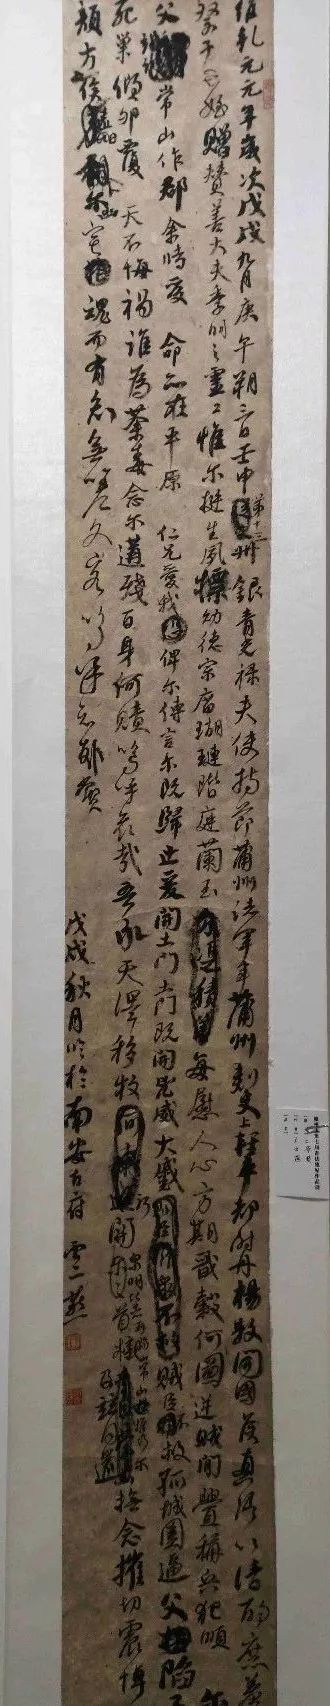 維乾元元年歲次戊戌九月庚午朔三日壬申第十三州銀青光祿夫使持節蒲州諸軍事蒲州刺史上輕車都尉丹楊縣開國侯真卿以清酌庶羞
祭于亡姪贈贊善大夫季明之靈惟爾挺生夙標幼德宗廟瑚璉階庭蘭玉每慰人心方期戩穀何圖逆賊閒釁稱兵犯順爾
父常山作郡余時受命亦在平原仁兄愛我俾爾傳言爾既歸止爰開土門土門既開凶威大蹙賊臣不救孤城圍逼父陷子
死巢傾卵覆天不悔禍誰為荼毒念爾遘殘百身何贖嗚乎哀哉吾承天澤移牧河關泉明比者再陷常山攜爾首櫬及茲同還撫念摧切震悼
顏方俟遠日卜爾宅魂而有知無嗟久客嗚呼哀哉尚饗
戊戌秋月於南安古府